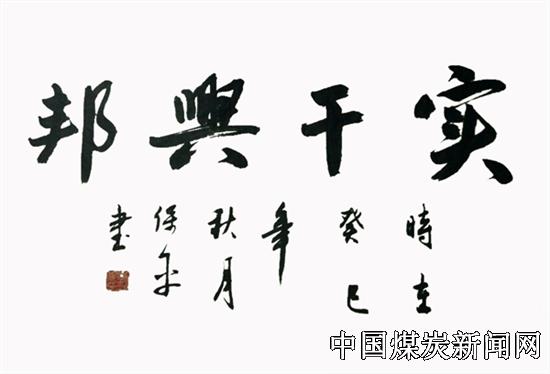 实干興邦
時在
癸巳
年
秋月
保平
書
中国煤炭新闻网